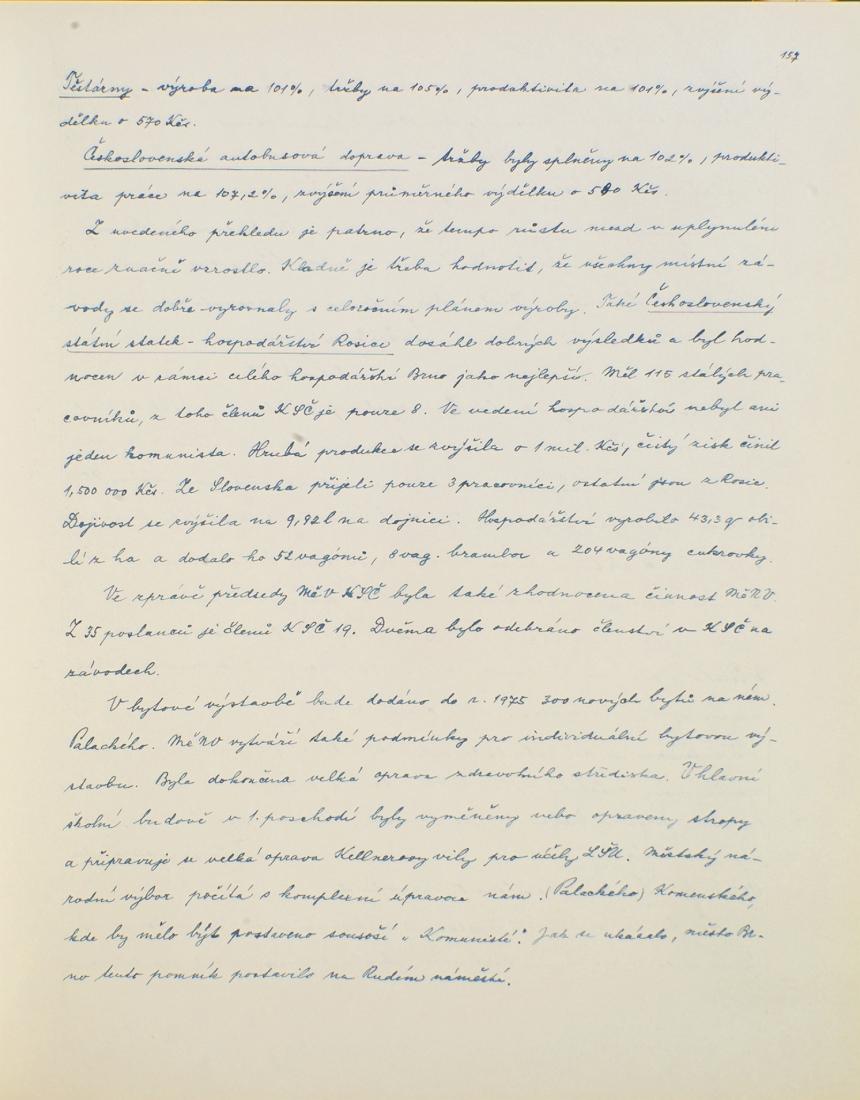 157
Těstárny – výroba na 101%, tržby na 105%, produktivita na 101%, zvýšení vý-
dělku o 570 Kčs.
Československá autobusová doprava – tržby byly splněny na 102%, produkti-
vita práce na 107,2%, zvýšení průměrného výdělku o 580 Kčs.
Z uvedeného přehledu je patrno, že tempo růstu mezd v uplynulém
roce značně vzrostlo. Kladně je třeba hodnotit, že všechny místní zá-
vody se dobře vyrovnaly s celoročním plánem výroby. Také Československý
státní statek – hospodářství Rosice dosáhl dobrých výsledků a byl hod-
nocen v rámci celého hospodářství Brno jako nejlepší. Měl 115 stálých pra-
covníků, z toho členů KSČ je pouze 8. Ve vedení hospodářství nebyl ani
jeden komunista. Hrubá produkce se zvýšila o 1 mil. Kčs, čistý zisk činil
1,500 000 Kčs. Ze Slovenska přijeli pouze 3 pracovníci, ostatní jsou z Rosic.
Dojivost se zvýšila na 9,92 l na dojnici. Hospodářství vyrobilo 43,3 q obi-
lí z ha a dodalo ho 52 vagónů, 8 vag. brambor a 204 vagóny cukrovky.
Ve zprávě předsedy MěV KSČ byla také zhodnocena činnost MěNV.
Z 35 poslanců je členů KSČ 19. Dvěma bylo odebráno členství v KSČ na
závodech.
V bytové výstavbě bude dodáno do r. 1975 300 nových bytů na nám.
Palackého. MěNV vytváří také podmínky pro individuální bytovou vý-
stavbu. Byla dokončena velká oprava zdravotního střediska. V hlavní
školní budově v 1. poschodí byly vyměněny nebo opraveny stropy
a připravuje se velká oprava Kellnerovy vily pro účely LŠU. Městský ná-
rodní výbor počítá s komplexní úpravou nám. (Palackého) Komenského,
kde by mělo být postaveno sousoší „Komunisté". Jak se ukázalo, město Br-
no tento pomník postavilo na Rudém náměstí.